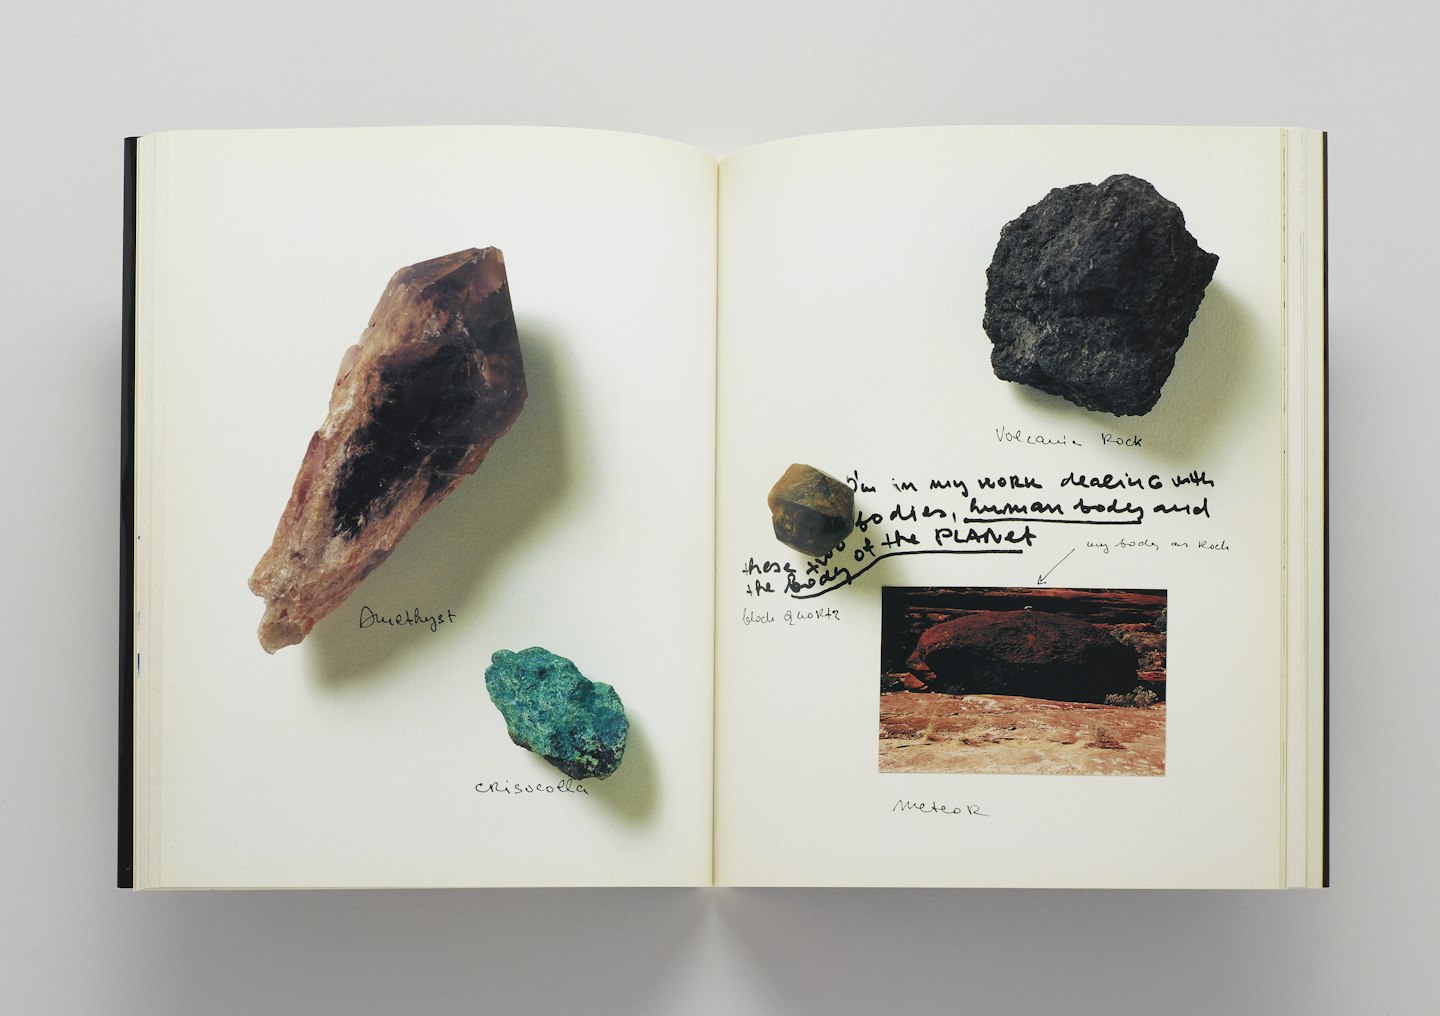 Amethyst
crisocolla
Volcanic Rock
I'm in my work dealing with
these two bodies, human body and
the body of the PLANET
my body as Rock
block quartz
meteor